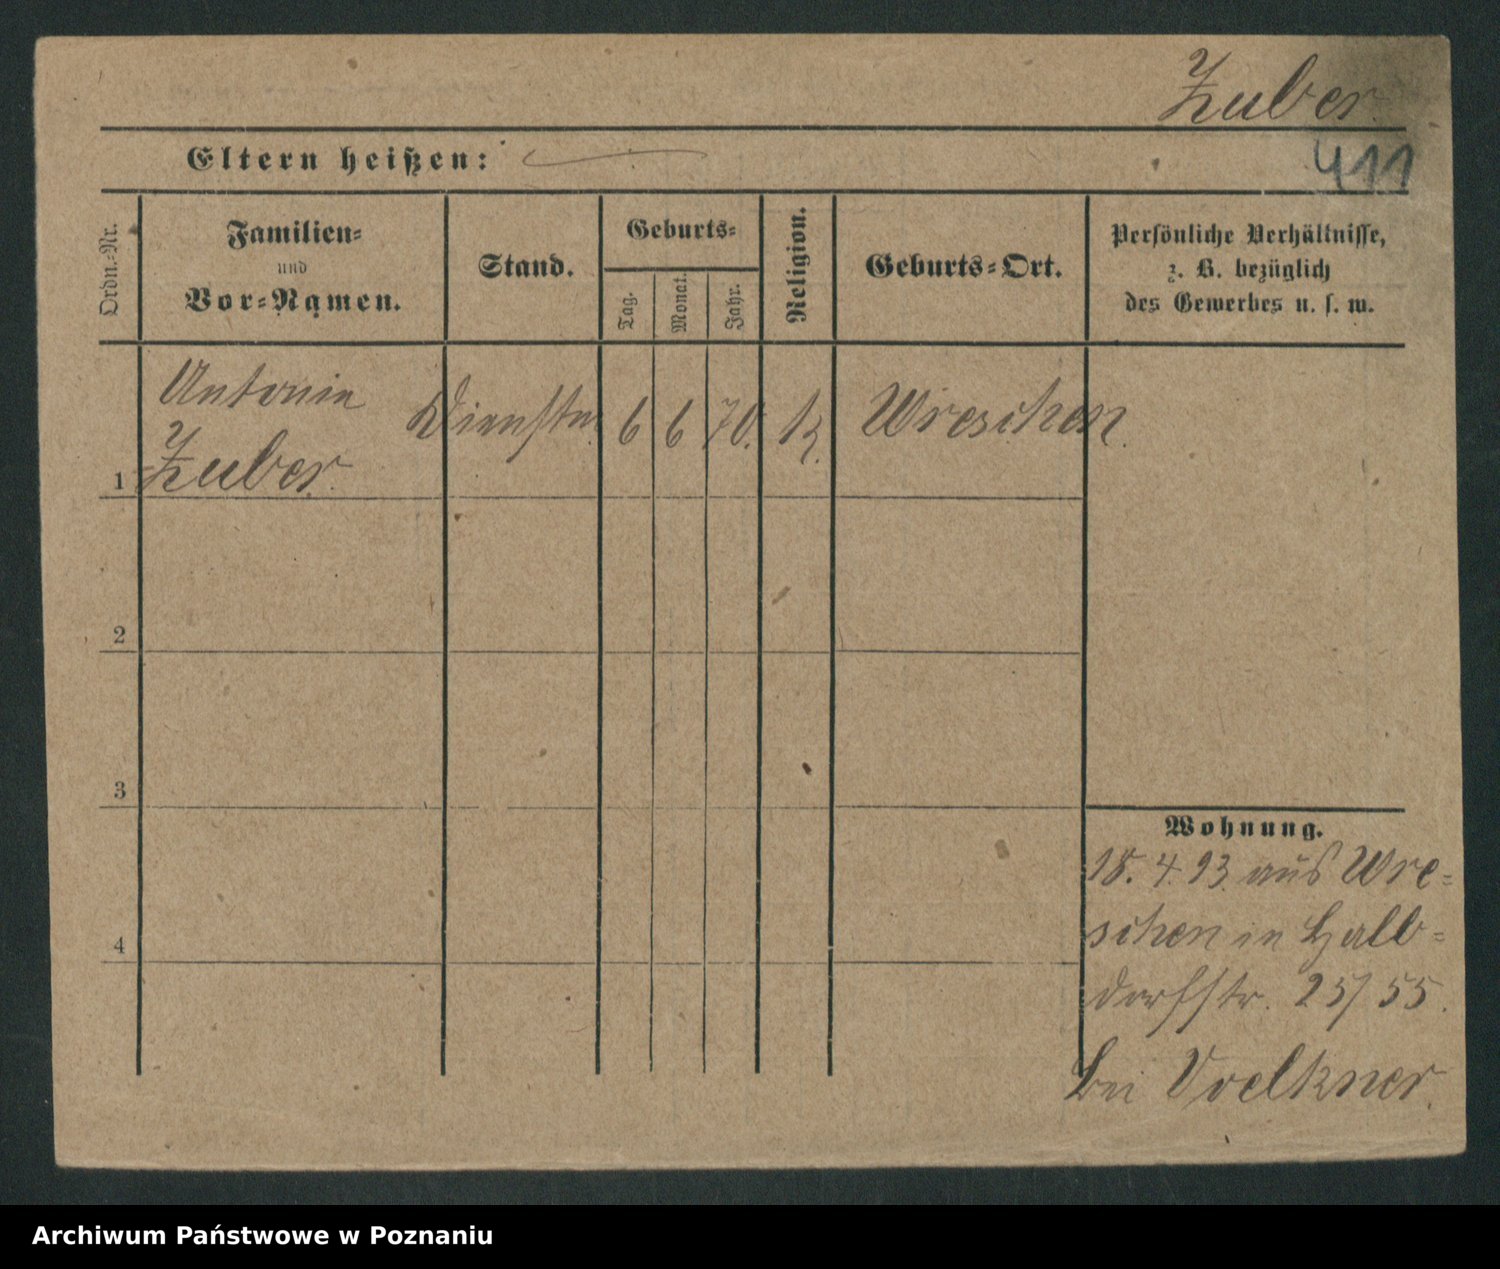 Zuber.
411
Eltern heißen:
Ordn.-Nr.
Familien-
und
Vor-Namen.
Stand.
Geburts-
Tag.
Monat.
Jahr.
Religion.
Geburts-Ort.
Persönliche Verhältnisse,
z. B. bezüglich
des Gewerbes u. s. w.
Antonie
Zuber.
Dienstm.
6
6
70.
k.
Wreschen.
1
2
3
4
Wohnung.
18. 4. 93. aus Wre-
schen in Halb-
dorfstr. 25/55.
bei Voelkner.
Archiwum Państwowe w Poznaniu